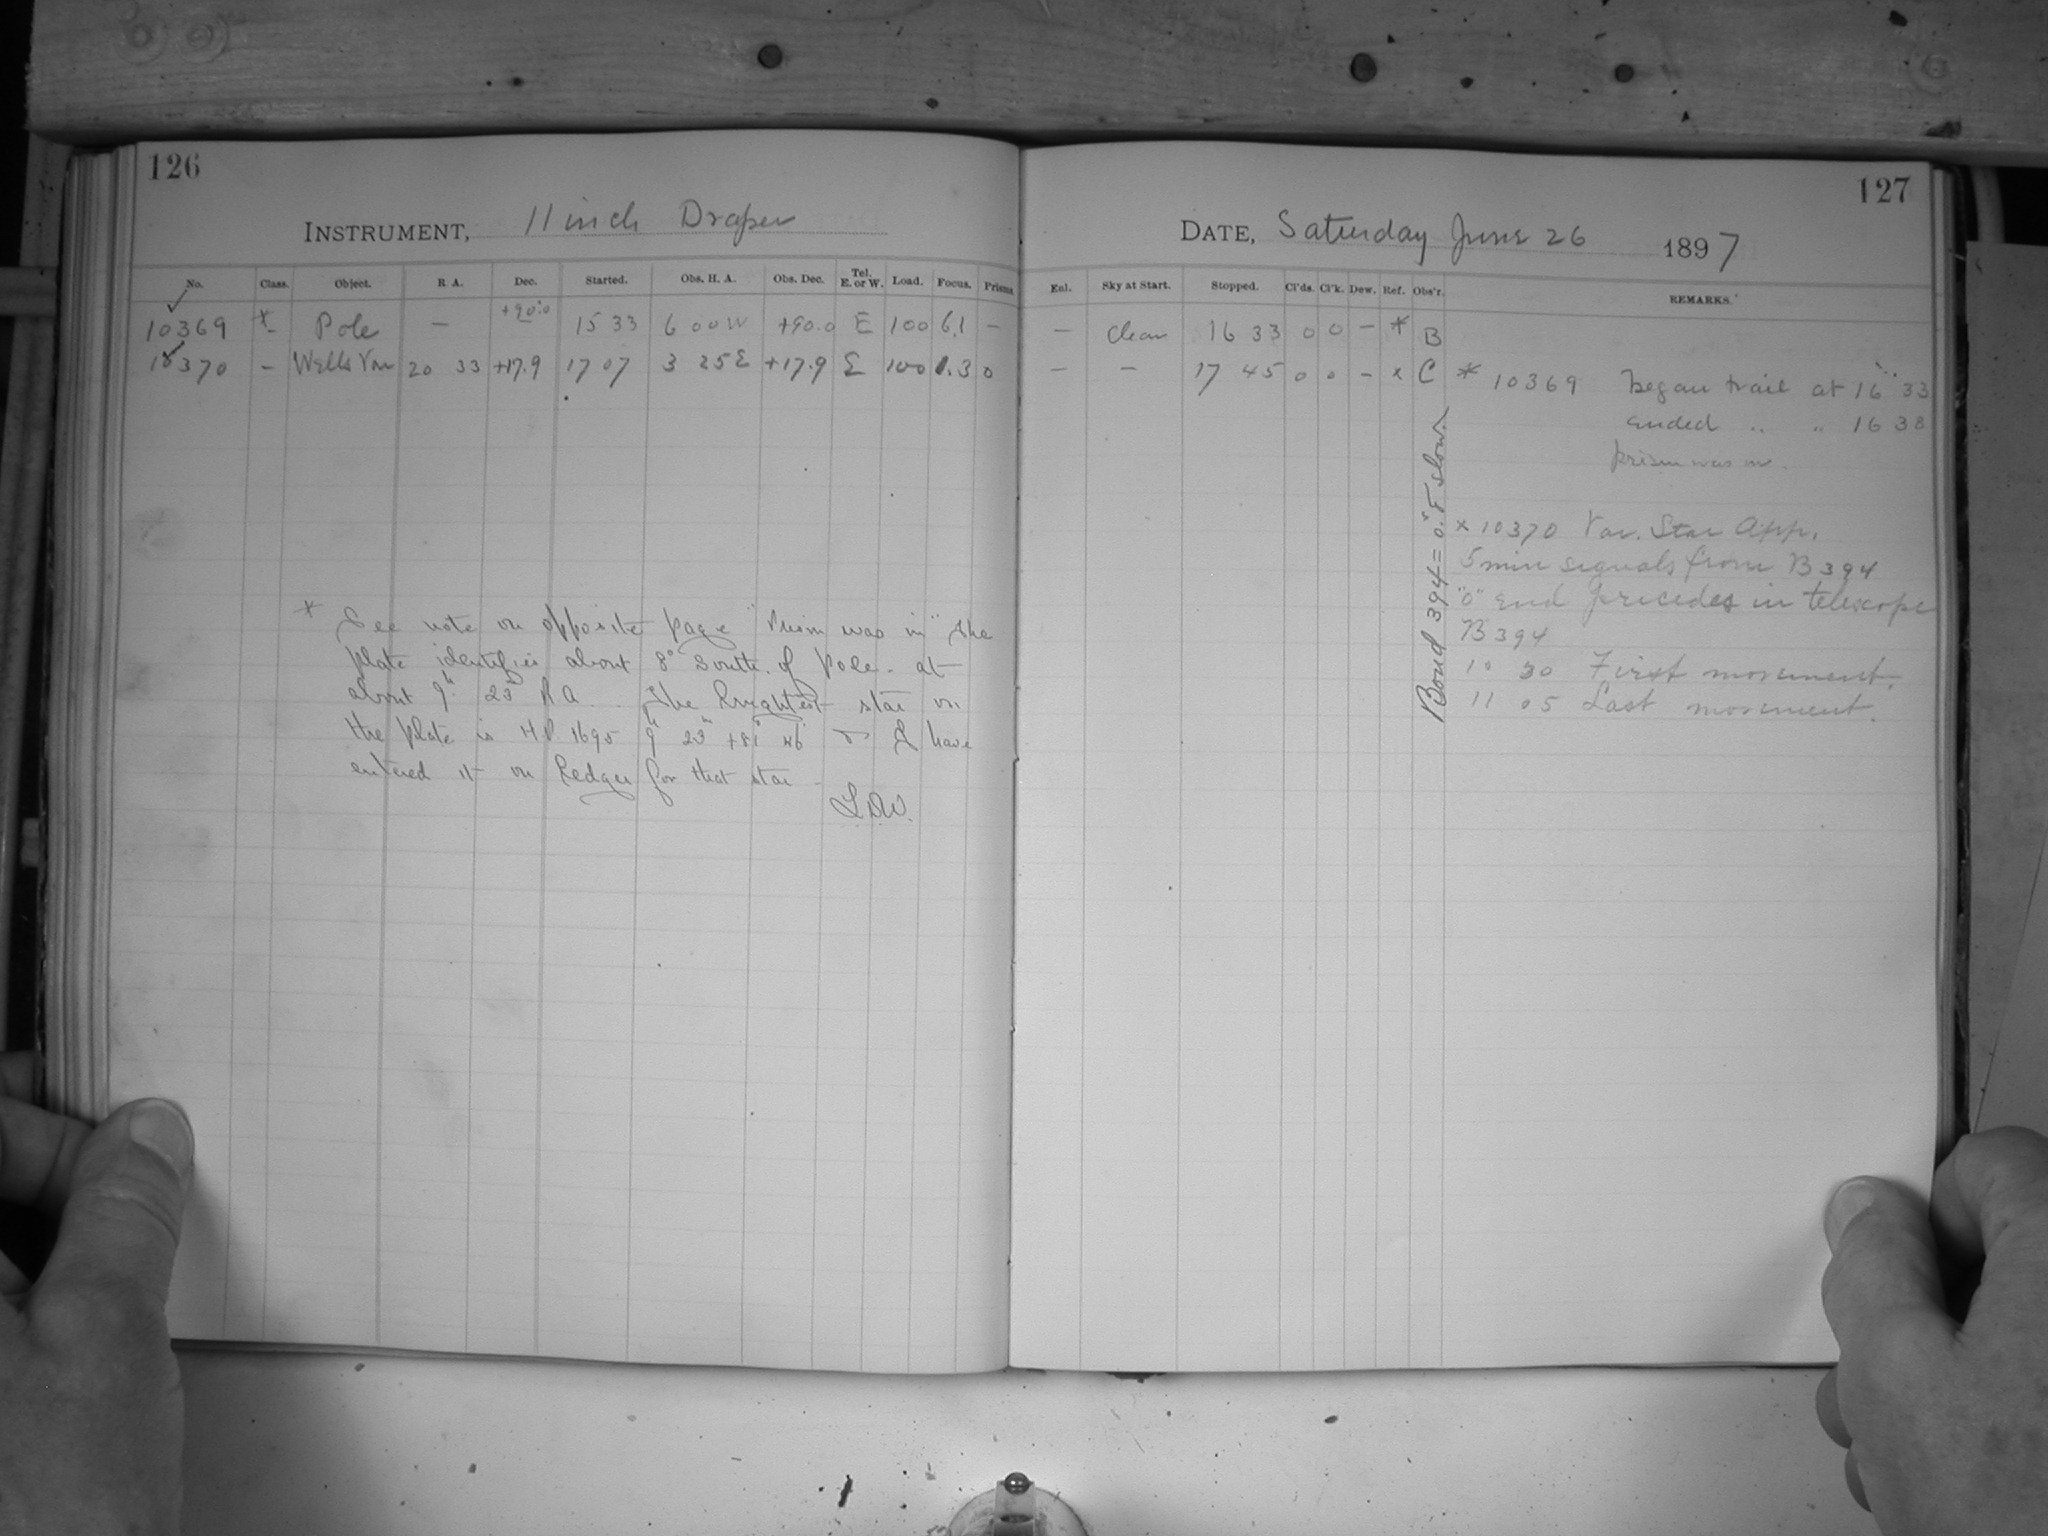 126
INSTRUMENT, 11 inch Draper
No. Class. Object. R A. Dec. Started. Obs. H. A. Obs. Dec. Tel. E. or W. Load. Focus. Prisms.
10369 * Pole — +90.0 15 33 6 00 W +90.0 E 100 6.1 —
10370 — Wells Var 20 33 +17.9 17 07 3 25 E +17.9 E 100 .3 0
* See note on opposite page "Prism was in" The
plate identifies about 8° South of Pole - at
about 9h 23m R A. The brightest star on
the plate is H.P. 1695 9h 23m +81° 46' I have
entered it on Ledger for that star -
L.D.W.
127
DATE, Saturday June 26 1897
Enl. Sky at Start. Stopped. Cl'ds. Cl'k. Dew. Ref. Obs'r. REMARKS.
— Clear 16 33 0 0 — * B
— — 17 45 0 0 — x C
* 10369 Began trail at 16 33
Ended " " 16 38
prism was in.
x 10370 Var. Star App.
5 min signals from B 394
"0" end precedes in telescope
B 394
10 30 First movement.
11 05 Last movement.
Bond 394 = 0.8 slow.